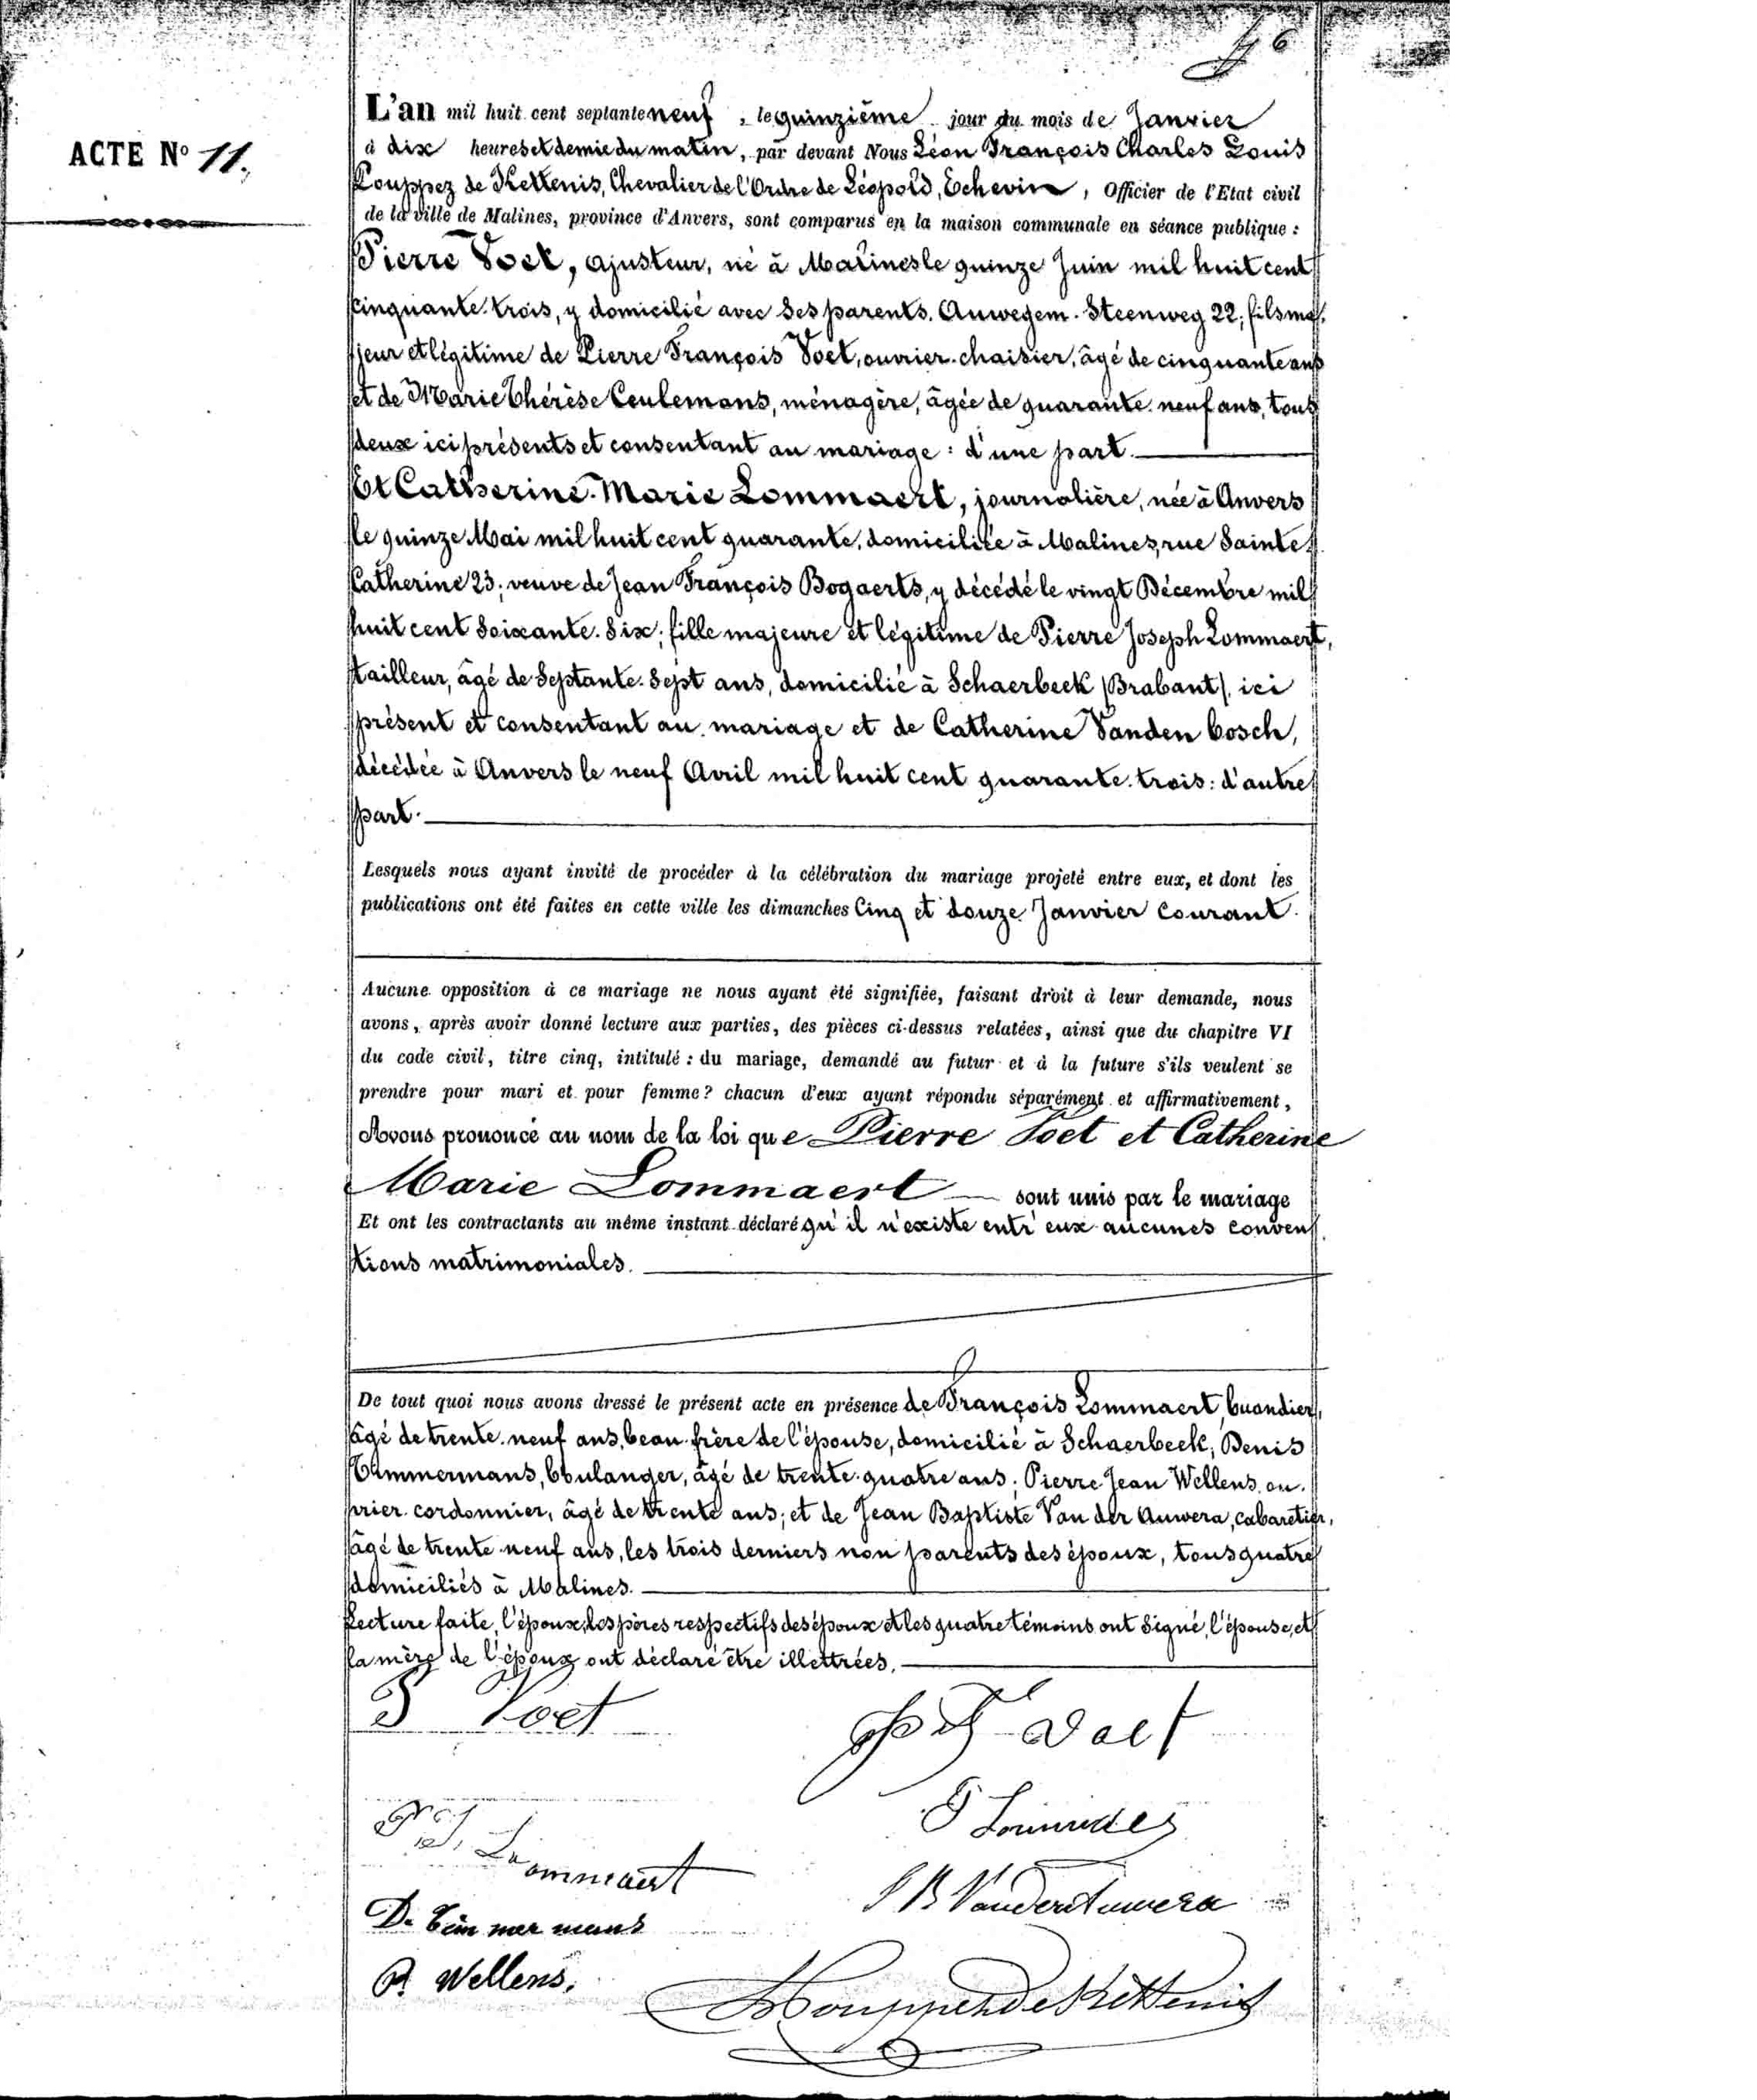 6
ACTE N° 11.
L'an mil huit cent septante neuf, le quinzième jour du mois de Janvier
à dix heures et demie du matin, par devant Nous Léon François Charles Louis
Pouppez de Kettenis, Chevalier de l'Ordre de Léopold, Echevin, Officier de l'Etat civil
de la ville de Malines, province d'Anvers, sont comparus en la maison communale en séance publique :
Pierre Voet, ajusteur, né à Malines le quinze Juin mil huit cent
cinquante-trois, y domicilié avec ses parents, Auwegem-Steenweg 22; fils ma-
jeur et légitime de Pierre François Voet, ouvrier-chaisier, âgé de cinquante ans
et de Marie Thérèse Ceulemans, ménagère, âgée de quarante-neuf ans, tous
deux ici présents et consentant au mariage : d'une part.
Et Catherine-Marie Lommaert, journalière, née à Anvers
le quinze Mai mil huit cent quarante, domiciliée à Malines, rue Sainte-
Catherine 23; veuve de Jean François Bogaerts, y décédé le vingt Décembre mil
huit cent soixante-six; fille majeure et légitime de Pierre Joseph Lommaert,
tailleur, âgé de septante-sept ans, domicilié à Schaerbeek (Brabant), ici
présent et consentant au mariage et de Catherine Vanden bosch,
décédée à Anvers le neuf Avril mil huit cent quarante-trois : d'autre
part.
Lesquels nous ayant invité de procéder à la célébration du mariage projeté entre eux, et dont les
publications ont été faites en cette ville les dimanches Cinq et douze Janvier Courant.
Aucune opposition à ce mariage ne nous ayant été signifiée, faisant droit à leur demande, nous
avons, après avoir donné lecture aux parties, des pièces ci-dessus relatées, ainsi que du chapitre VI
du code civil, titre cinq, intitulé : du mariage, demandé au futur et à la future s'ils veulent se
prendre pour mari et pour femme ? chacun d'eux ayant répondu séparément et affirmativement,
Avons prononcé au nom de la loi que Pierre Voet et Catherine
Marie Lommaert sont unis par le mariage
Et ont les contractants au même instant déclaré qu'il n'existe entr'eux aucunes conven-
tions matrimoniales.
De tout quoi nous avons dressé le présent acte en présence de François Lommaert, buandier,
âgé de trente-neuf ans, beau-frère de l'épouse, domicilié à Schaerbeek; Denis
Timmermans, boulanger, âgé de trente-quatre ans; Pierre Jean Wellens, ou-
vrier-cordonnier, âgé de trente ans; et de Jean Baptiste Van der Auwera, cabaretier,
âgé de trente-neuf ans, les trois derniers non parents des époux, tous quatre
domiciliés à Malines.
Lecture faite, l'époux, les pères respectifs des époux et les quatre témoins ont signé, l'épouse, et
la mère de l'époux ont déclaré être illettrées.
P Voet
P F Voet
P. J. Lommaert
J B Vanderauwera
D. Timmermans
P. Wellens.
Pouppez de Kettenis